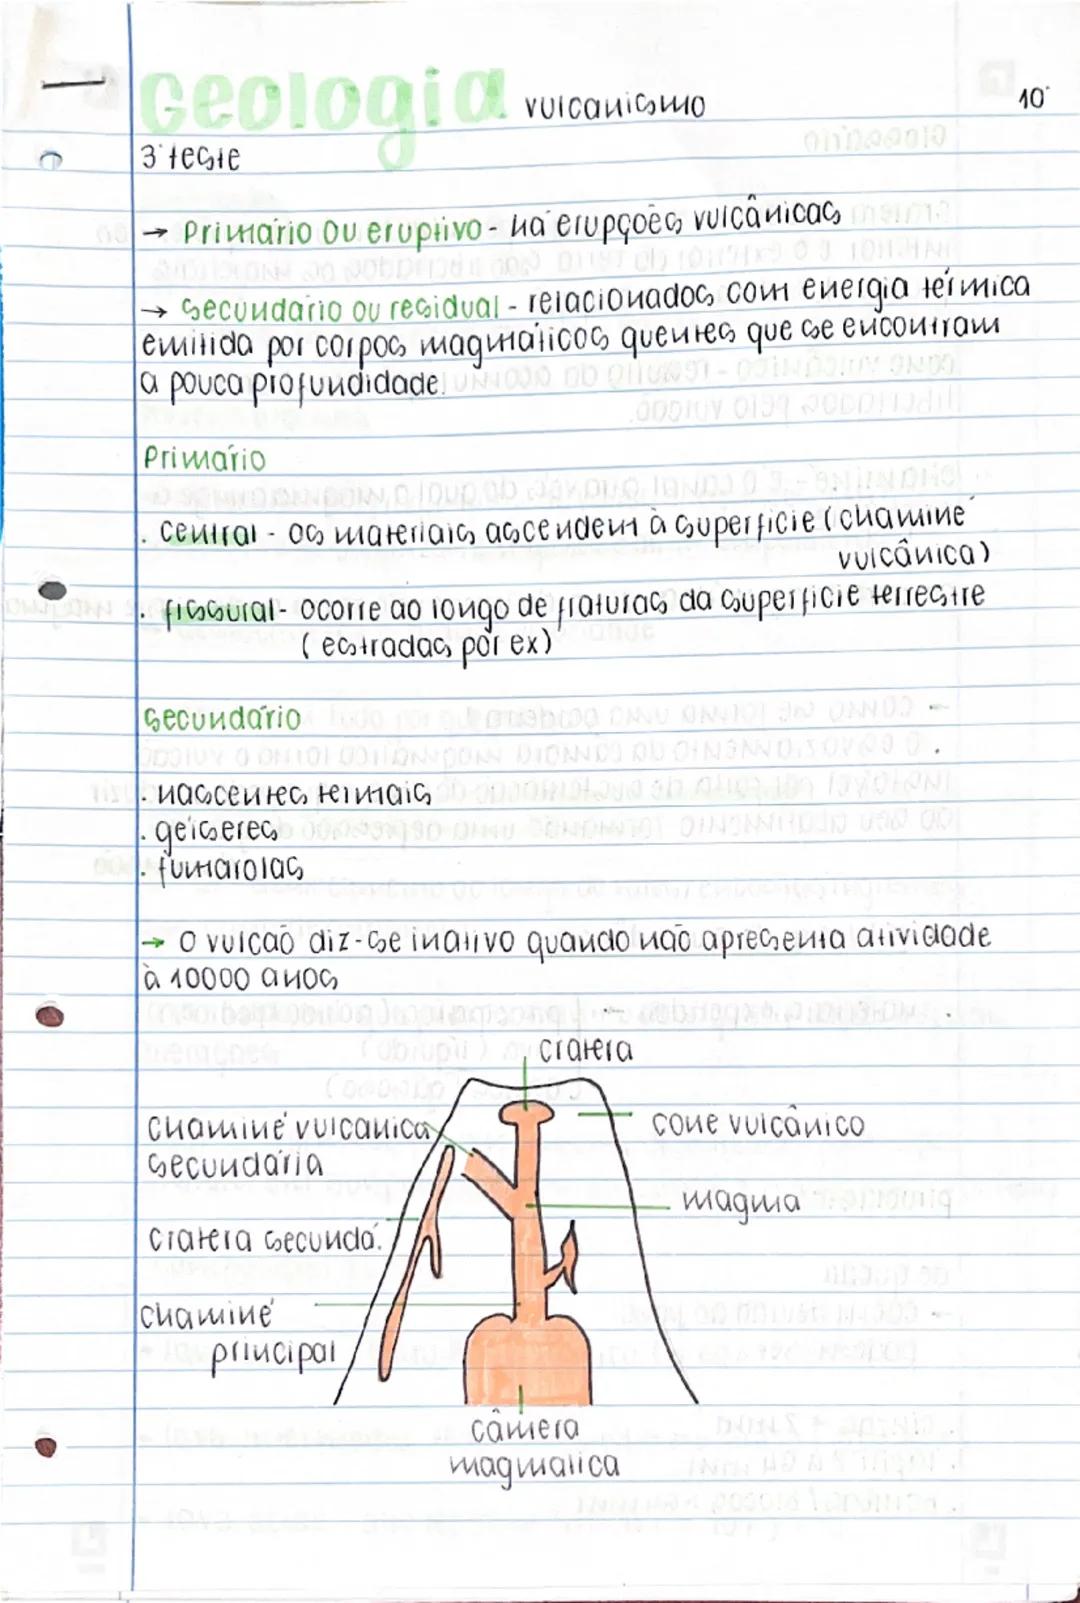 Geologia vulcanismo 10°
3° teste
→ Primário ou eruptivo - há erupções vulcânicas
→ Secundário ou residual - relacionados com energia térmica
emitida por corpos magmáticos quentes que se encontram
a pouca profundidade.
Primário
. central - os materiais ascendem à superfície (chaminé
vulcânica)
. fissural - ocorre ao longo de fraturas da superfície terrestre
(estradas por ex)
Secundário
. nascentes termais
. geiseres
. fumarolas
→ O vulcão diz-se inativo quando não apresenta atividade
à 10000 anos
cratera
chaminé vulcanica
secundária
cone vulcânico
magma
cratera secundá.
chaminé
principal
câmera
magmatica